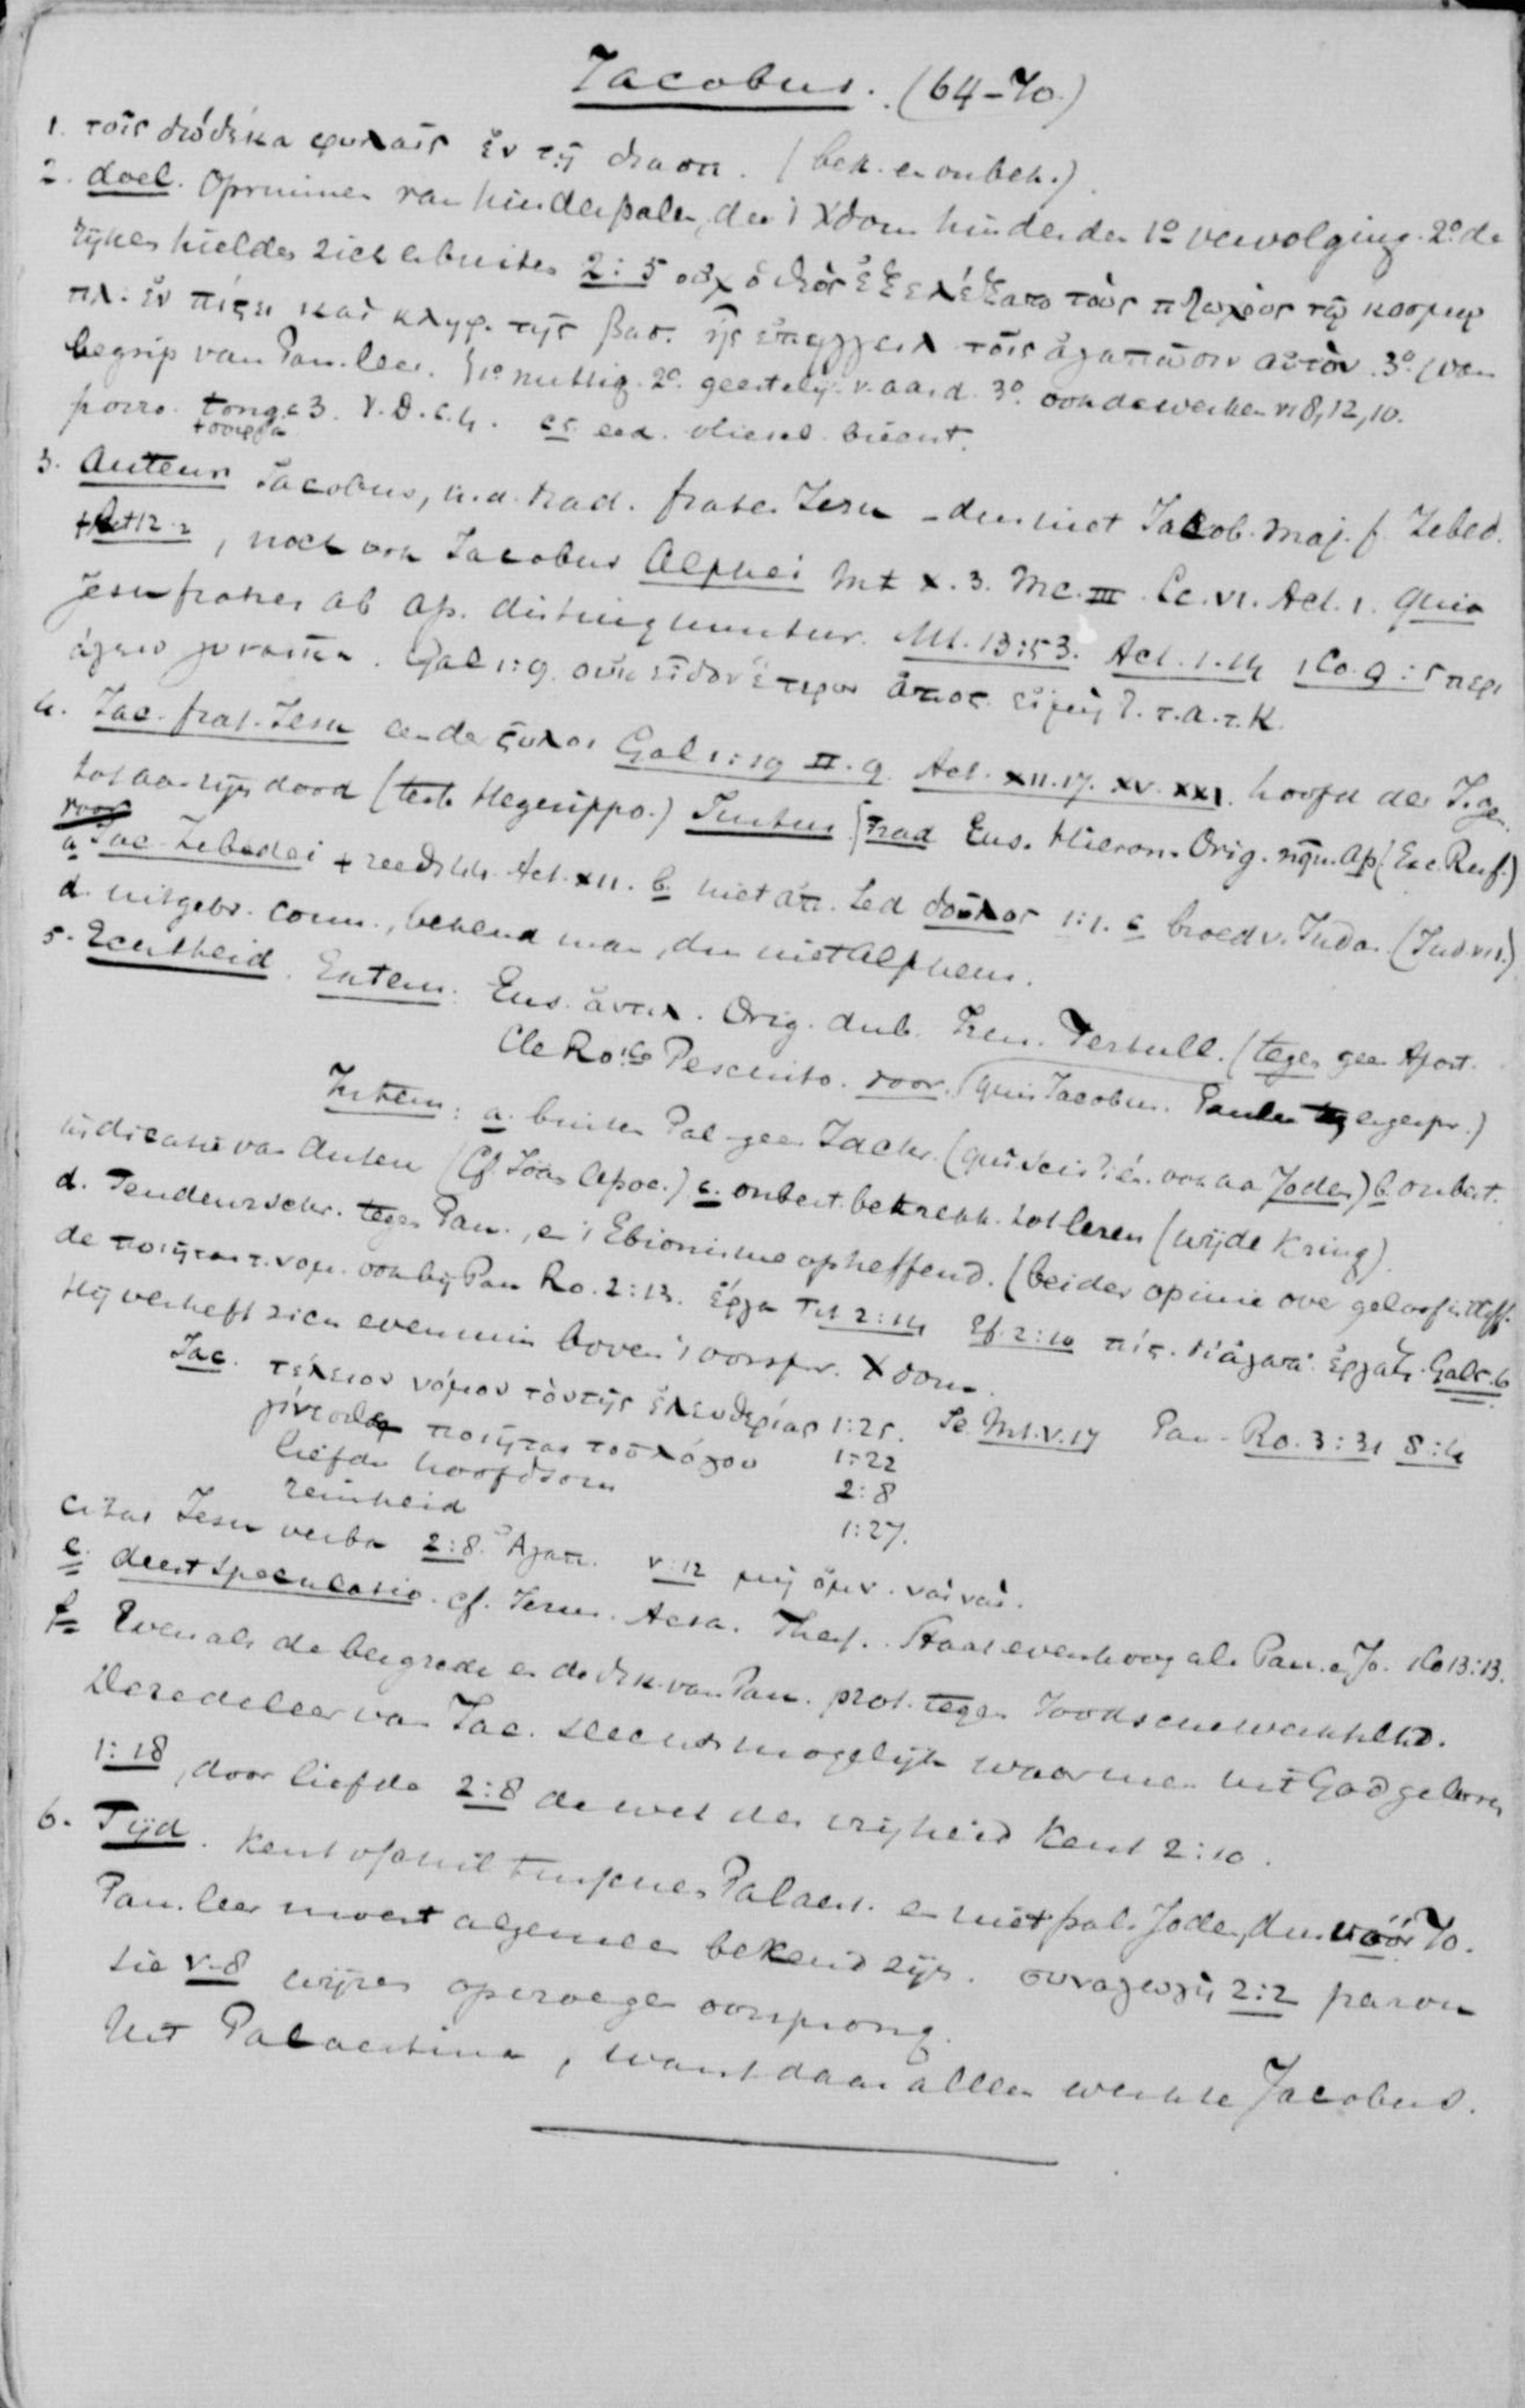 Jacobus. (64-70.)
1. τοῖς δώδεκα φυλαῖς ἐν τῇ διασπ. (bek. en onbek.).
2. doel. Opruimen van hinderpalen, die 't Xdom hinderden 1º vervolging. 2º. de
rijken hielden zich er buiten 2:5 οὐχ ὁ θεὸς ἐξελέξατο τοὺς πτωχοὺς τῷ κοσμῳ
πλ. ἐν πίστει καὶ κληρ. τῆς βασ. ἧς ἐπηγγειλ τοῖς ἀγαπῶσιν αὐτὸν. 3º. (wan
begrip van Pau. leer. 1º nuttig. 2º. geestelij. v. aard. 3º. ook de werken v. 8, 12, 10.
porro. tong c 3. V.D. c. 4. c 5. eed.
3. Auteur Jacobus, v. d. trad. frater Jesu - dus niet Jacob. Maj. f. Zebed.
† Act 12.2, noch ook Jacobus Alphei Mt X.3. Mc. III. Lc. VI. Act. 1. quia
Jesu fratres ab ap. distinguuntur. Mt. 13:53. Act. 1.14 1 Co. 9:5 περι
άγειν γυναῖκα. Gal 1:19. οὐκ εἶδον ἕτερον ἀποσ. εἰ μὴ Ἰ. τ. α. τ. Κ.
4. Jac. frat. Jesu een der ςυλοι Gal 1:19 II.9. Act. XII.17. XV. XXI. hoofd der J. ge.
tot aan zijn dood (teste Hegesippo.) Justus. Trad Eus. Hieron. Orig. nqu. Ap (Exc. Ruf.)
voor
a Jac. Zebedei † reeds 44. Act. XII. b. niet ἀπ. sed δοῦλος 1:1. c broed v. Juda. (Jud vs 1.)
d. uitgebr. corr., bekend man, dus niet Alpheus.
5. Echtheid. Extern. Eus. ἀντιλ. Orig. dub. Iren. Tertull. (tegen geen Apost.
Cle Ro 1 Co Peschito. voor. (quia Jacobus. Paulus tegenspr.)
Intern: a. buiten Pal geen Jac. (quis scit? én. ook aa Joden) b. onbest.
indicatie van Auteu (Cf Joän Apoc.) c. onbest. betrekk. tot lezers (wijde kring).
d. Tendenzschr. tegen Pau., en 't Ebionisme opheffend. (beider opinie over geloof
de ποιηται τ. νομ. ook bij Pau Ro. 2:13. ἔργα Tit 2:14 Ef. 2:10 πίς. δι' ἀγαπ. ἐργαζ. Gal 5.6
Hij verheft zich evenmin boven 't oorspr. Xdom.
Jac. τέλειον νόμον τὸν τῆς ἐλευθερίας 1:25. Je. Mt. V.17 Pau. Ro. 3:31 8:4
γίνεσθε ποιηται τοῦ λόγου 1:22
liefde hoofdsom 2:8
reinheid 1:27.
citat Jesu verba 2:8. Ἀγαπ. V:12 μὴ ὀμν. ναὶ ναὶ.
e. deest speculatio. cf. Jesus. Acta. Thess. Staat even hoog als Pau. en Jo. 1 Co 13:13.
f. Evenals de bergrede en de Tk. van Pau. prot. tegen Joodsche werkheld.
Deze deleer van Jac. slechts mogelijk waar men uit God geboren
1:18, door liefde 2:8 de wet der vrijheid kent 2:10.
6. Tijd. Kent ofschil tusschen Palaest. en niet pal. Joden, dus vóór 70.
Pau. leer moest algemeen bekend zijn. συναγωγὴ 2:2 parou
sie V.8 wijzen op vroegen oorsprong.
Uit Palaestina, want daar alleen werkte Jacobus.